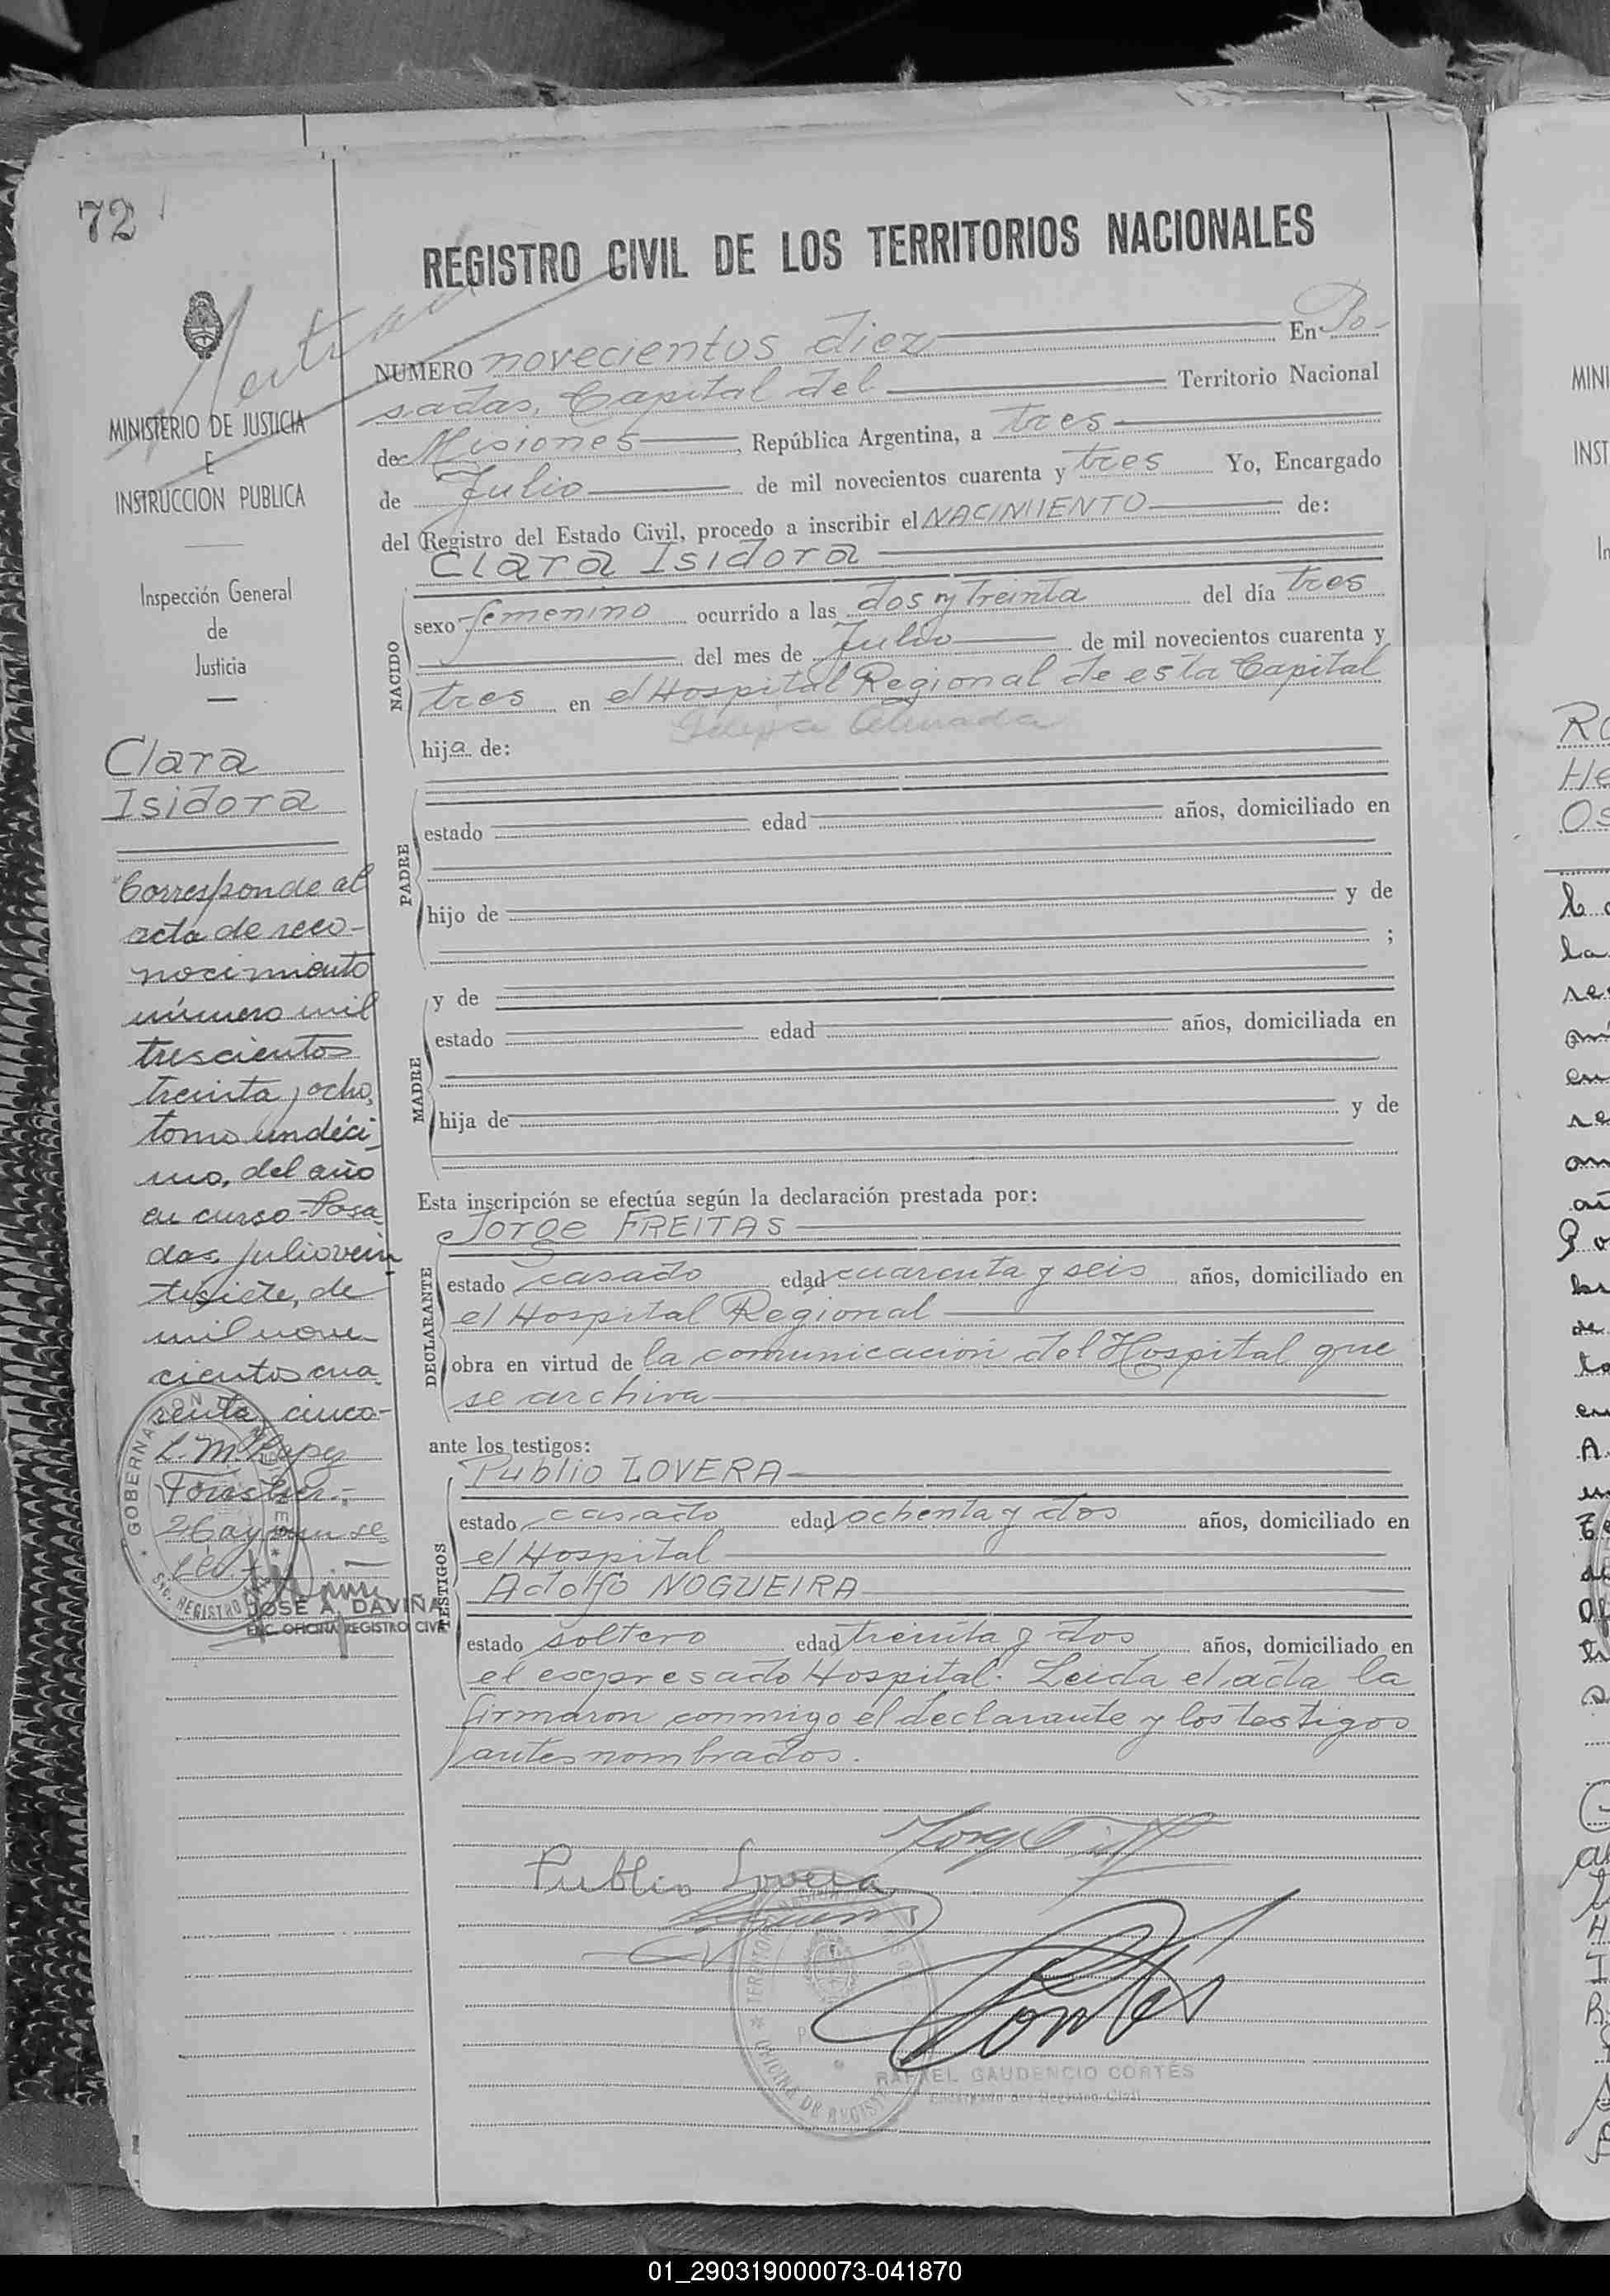 72
REGISTRO CIVIL DE LOS TERRITORIOS NACIONALES
MINISTERIO DE JUSTICIA
E
INSTRUCCION PUBLICA
Inspección General
de
Justicia
Clara
Isidora
Corresponde al
acta de reco-
nocimiento
número mil
trescientos
treinta y ocho,
tomo undéci
mo, del año
en curso - Posa
das, julio vein
tisiete, de
mil nove
cientos cua
renta y cinco-
L. M.
Hay un se
llo
GOBERNACION
REGISTRO CIVIL
JOSE A. DAVIÑA
ENC. OFICINA REGISTRO CIVIL
NUMERO novecientos diez En Po-
sadas, Capital del Territorio Nacional
de Misiones, República Argentina, a tres
de Julio de mil novecientos cuarenta y tres Yo, Encargado
del Registro del Estado Civil, procedo a inscribir el NACIMIENTO de:
Clara Isidora
NACIDO
sexo femenino ocurrido a las dos y treinta del día tres
del mes de Julio de mil novecientos cuarenta y
tres en el Hospital Regional de esta Capital
hija de:
PADRE
estado edad años, domiciliado en
hijo de y de
;
MADRE
y de
estado edad años, domiciliada en
hija de y de
Esta inscripción se efectúa según la declaración prestada por:
DECLARANTE
Jorge FREITAS
estado casado edad cuarenta y seis años, domiciliado en
el Hospital Regional
obra en virtud de la comunicación del Hospital que
se archiva
ante los testigos:
TESTIGOS
Publio LOVERA
estado casado edad ochenta y dos años, domiciliado en
el Hospital
Adolfo NOGUEIRA
estado soltero edad treinta y dos años, domiciliado en
el expresado Hospital. Leida el acta la
firmaron conmigo el declarante y los testigos
antes nombrados.
Publio Lovera
Cortés
OFICINA DE REGISTRO
RAFAEL GAUDENCIO CORTES
Encargado del Registro Civil
01_290319000073-041870